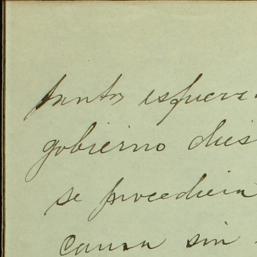 tantos esfuerz
gobierno dies
se procediera
causa sin